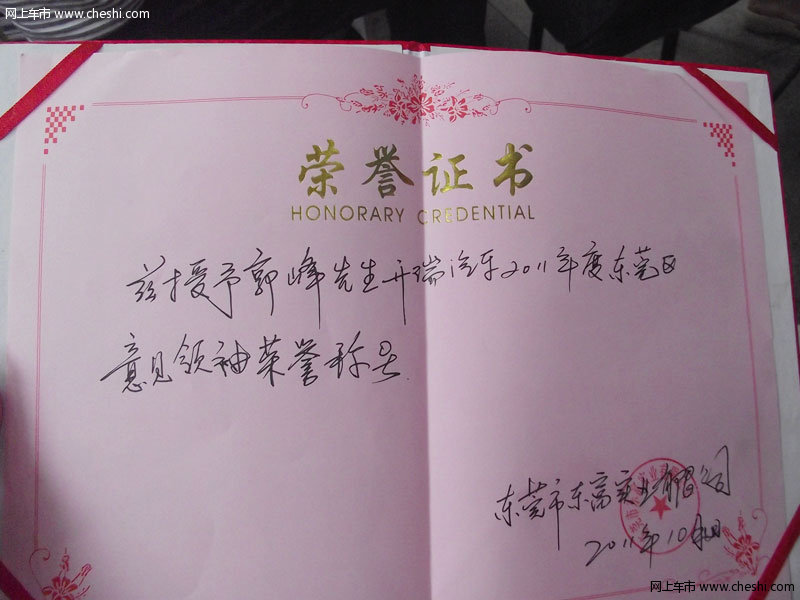 网上车市 www.cheshi.com
荣誉证书
HONORARY CREDENTIAL
兹授予郭峰先生开瑞汽车2011年度东莞区
意见领袖荣誉称号.
东莞市东富实业有限公司
2011年10月
网上车市 www.cheshi.com